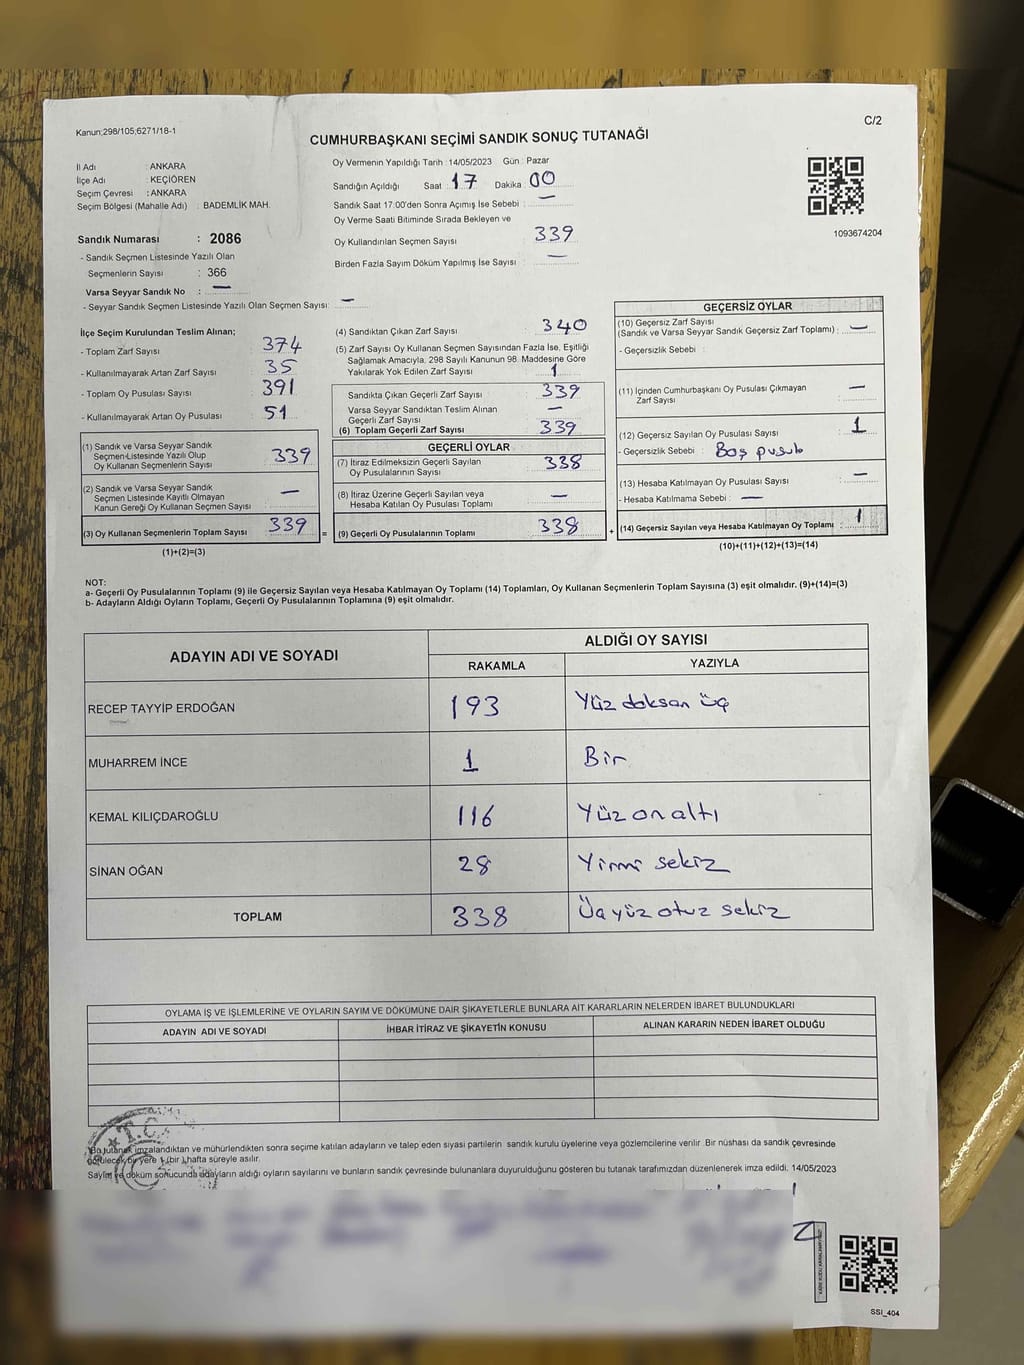 Kanun;298/105,6271/18-1
C/2
CUMHURBAŞKANI SEÇİMİ SANDIK SONUÇ TUTANAĞI
İl Adı : ANKARA
İlçe Adı : KEÇİÖREN
Seçim Çevresi : ANKARA
Seçim Bölgesi (Mahalle Adı) : BADEMLİK MAH.
Sandık Numarası : 2086
- Sandık Seçmen Listesinde Yazılı Olan
Seçmenlerin Sayısı : 366
Varsa Seyyar Sandık No : —
- Seyyar Sandık Seçmen Listesinde Yazılı Olan Seçmen Sayısı: —
Oy Vermenin Yapıldığı Tarih : 14/05/2023 Gün : Pazar
Sandığın Açıldığı Saat 17 Dakika : 00
Sandık Saat 17:00'den Sonra Açımış İse Sebebi : —
Oy Verme Saati Bitiminde Sırada Bekleyen ve
Oy Kullandırılan Seçmen Sayısı 339
Birden Fazla Sayım Döküm Yapılmış İse Sayısı : —
1093674204
İlçe Seçim Kurulundan Teslim Alınan;
- Toplam Zarf Sayısı 374
- Kullanılmayarak Artan Zarf Sayısı : 35
- Toplam Oy Pusulası Sayısı 391
- Kullanılmayarak Artan Oy Pusulası : 51
(1) Sandık ve Varsa Seyyar Sandık
Seçmen Listesinde Yazılı Olup
Oy Kullanan Seçmenlerin Sayısı 339
(2) Sandık ve Varsa Seyyar Sandık
Seçmen Listesinde Kayıtlı Olmayan
Kanun Gereği Oy Kullanan Seçmen Sayısı : —
(3) Oy Kullanan Seçmenlerin Toplam Sayısı 339
(1)+(2)=(3)
(4) Sandıktan Çıkan Zarf Sayısı 340
(5) Zarf Sayısı Oy Kullanan Seçmen Sayısından Fazla İse, Eşitliği
Sağlamak Amacıyla, 298 Sayılı Kanunun 98. Maddesine Göre
Yakılarak Yok Edilen Zarf Sayısı 1
Sandıkta Çıkan Geçerli Zarf Sayısı 339
Varsa Seyyar Sandıktan Teslim Alınan
Geçerli Zarf Sayısı —
(6) Toplam Geçerli Zarf Sayısı 339
GEÇERLİ OYLAR
(7) İtiraz Edilmeksizin Geçerli Sayılan
Oy Pusulalarının Sayısı 338
(8) İtiraz Üzerine Geçerli Sayılan veya
Hesaba Katılan Oy Pusulası Toplamı —
= (9) Geçerli Oy Pusulalarının Toplamı 338 +
GEÇERSİZ OYLAR
(10) Geçersiz Zarf Sayısı
(Sandık ve Varsa Seyyar Sandık Geçersiz Zarf Toplamı) : —
- Geçersizlik Sebebi :
(11) İçinden Cumhurbaşkanı Oy Pusulası Çıkmayan
Zarf Sayısı —
(12) Geçersiz Sayılan Oy Pusulası Sayısı 1
- Geçersizlik Sebebi : Boş pusula
(13) Hesaba Katılmayan Oy Pusulası Sayısı —
- Hesaba Katılmama Sebebi : —
(14) Geçersiz Sayılan veya Hesaba Katılmayan Oy Toplamı : 1
(10)+(11)+(12)+(13)=(14)
NOT:
a- Geçerli Oy Pusulalarının Toplamı (9) ile Geçersiz Sayılan veya Hesaba Katılmayan Oy Toplamı (14) Toplamları, Oy Kullanan Seçmenlerin Toplam Sayısına (3) eşit olmalıdır. (9)+(14)=(3)
b- Adayların Aldığı Oyların Toplamı, Geçerli Oy Pusulalarının Toplamına (9) eşit olmalıdır.
ADAYIN ADI VE SOYADI ALDIĞI OY SAYISI
RAKAMLA YAZIYLA
RECEP TAYYİP ERDOĞAN 193 Yüz doksan üç
MUHARREM İNCE 1 Bir
KEMAL KILIÇDAROĞLU 116 Yüz on altı
SİNAN OĞAN 28 Yirmi sekiz
TOPLAM 338 Üç yüz otuz sekiz
OYLAMA İŞ VE İŞLEMLERİNE VE OYLARIN SAYIM VE DÖKÜMÜNE DAİR ŞİKAYETLERLE BUNLARA AİT KARARLARIN NELERDEN İBARET BULUNDUKLARI
ADAYIN ADI VE SOYADI İHBAR İTİRAZ VE ŞİKAYETİN KONUSU ALINAN KARARIN NEDEN İBARET OLDUĞU
T.C.
Bu tutanak imzalandıktan ve mühürlendikten sonra seçime katılan adayların ve talep eden siyasi partilerin sandık kurulu üyelerine veya gözlemcilerine verilir. Bir nüshası da sandık çevresinde
görülecek bir yere 1 (bir) hafta süreyle asılır.
Sayım ve döküm sonucunda adayların aldığı oyların sayılarını ve bunların sandık çevresinde bulunanlara duyurulduğunu gösteren bu tutanak tarafımızdan düzenlenerek imza edildi. 14/05/2023
SSI_404